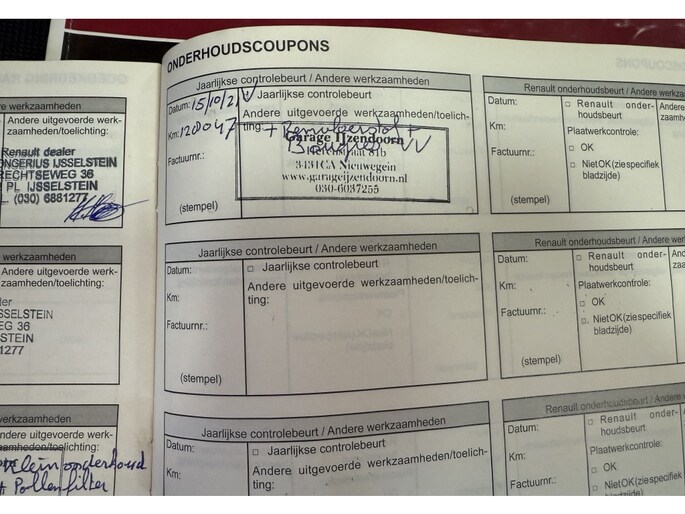 ONDERHOUDSCOUPONS
e werkzaamheden
Andere uitgevoerde werk-
zaamheden/toelichting:
Renault dealer
ONGERIUS IJSSELSTEIN
RECHTSEWEG 36
PL IJSSELSTEIN
L. (030) 6881277
werkzaamheden
Andere uitgevoerde werk-
zaamheden/toelichting:
ler
JSSELSTEIN
EG 36
STEIN
1277
werkzaamheden
Andere uitgevoerde werk-
zaamheden/toelichting:
Klein onderhoud
+ Pollenfilter
Jaarlijkse controlebeurt / Andere werkzaamheden
Datum: 15/10/21
Jaarlijkse controlebeurt
Andere uitgevoerde werkzaamheden/toelich-
ting:
Km: 120047
+ Remvloeistof +
Factuurnr.:
Garage IJzendoorn
3431CA Nieuwegein
www.garageijzendoorn.nl
030-6037255
(stempel)
Renault onderhoudsbeurt / Andere werkza
Datum:
Renault onder-
houdsbeurt
Km:
Plaatwerkcontrole:
OK
Factuurnr.:
Niet OK (zie specifiek
bladzijde)
(stempel)
Jaarlijkse controlebeurt / Andere werkzaamheden
Datum:
Jaarlijkse controlebeurt
Andere uitgevoerde werkzaamheden/toelich-
ting:
Km:
Factuurnr.:
(stempel)
Renault onderhoudsbeurt / Andere werk
Datum:
Renault onder-
houdsbeurt
Km:
Plaatwerkcontrole:
OK
Factuurnr.:
Niet OK (zie specifiek
bladzijde)
(stempel)
Jaarlijkse controlebeurt / Andere werkzaamheden
Datum:
Jaarlijkse controlebeurt
Andere uitgevoerde werkzaamheden/toelich-
ting:
Km:
Factuurnr.:
Renault onderhoudsbeurt / Andere
Datum:
Renault onder-
houdsbeurt
Km:
Plaatwerkcontrole:
OK
Factuurnr.:
Niet OK (zie specifiek
bladzijde)